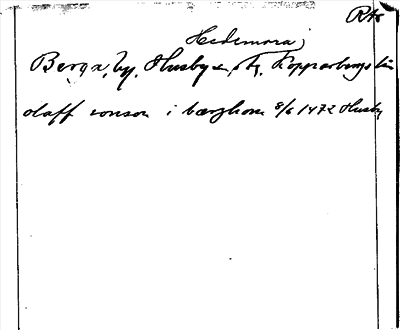 Rts
Hedemora
Berga, by, Husby sn, Kopparbergs län
olaff ionson i bærghom 8/6 1472 Husby